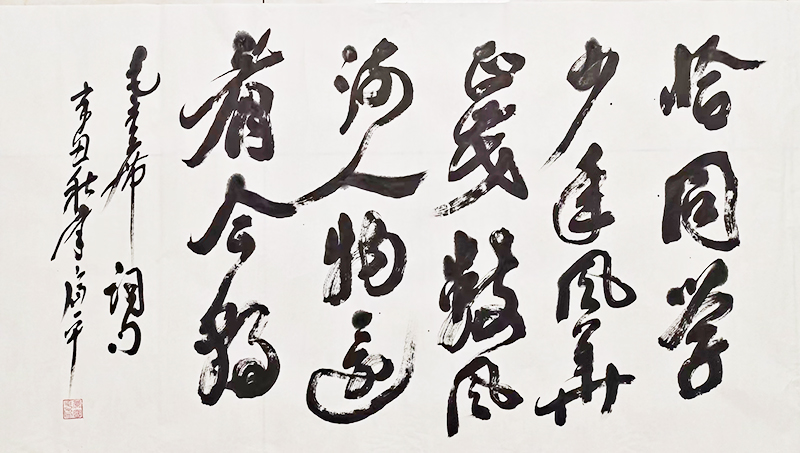 恰同学
少年风華
正茂数风
流人物還
看今朝
毛主席词句
辛丑秋平